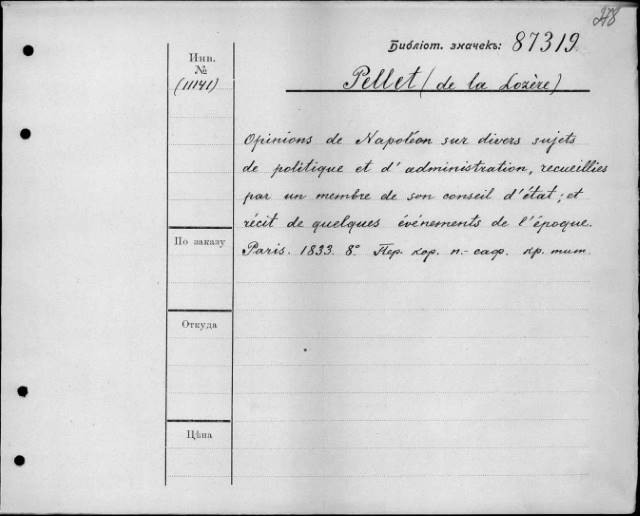 278
Библіот. значекъ: 87319
Инв.
№
(11141)
Pellet (de la Lozère)
Opinions de Napoléon sur divers sujets
de politique et d'administration, recueillies
par un membre de son conseil d'état; et
récit de quelques événements de l'époque.
Paris. 1833. 8° Пер. кор. п.-саф. кр. тит.
По заказу
Откуда
Цѣна